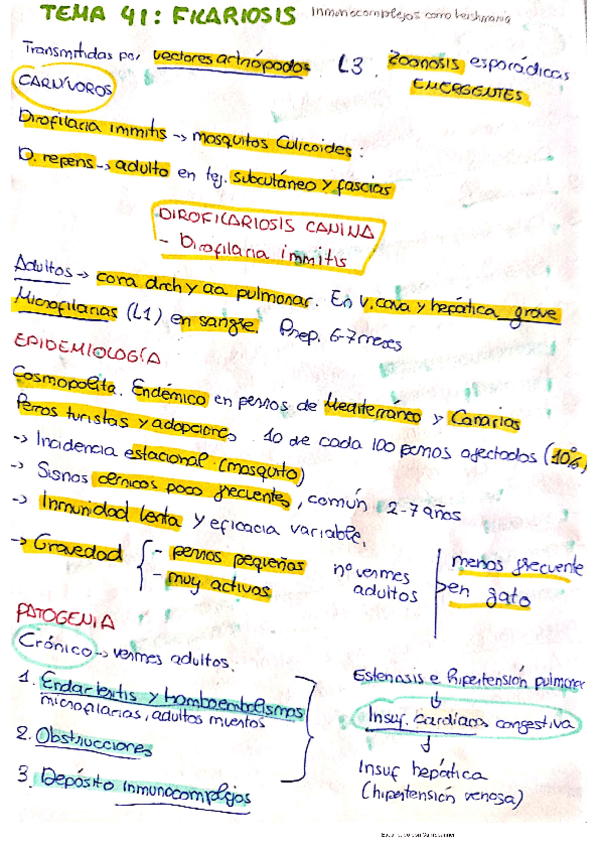 TEMA 41: FILARIOSIS Inmunocomplejos como leishmania
Transmitidas por vectores artrópodos. L3. Zoonosis esporádicas
EMERGENTES
CARNÍVOROS
Dirofilaria immitis -> mosquitos Culicoides:
D. repens -> adulto en tej. subcutáneo y fascias
DIROFILARIOSIS CANINA
- Dirofilaria immitis
Adultos -> cora drch y aa pulmonar. En v. cava y hepática grave
Microfilarias (L1) en sangre. Prep. 6-7 meses
EPIDEMIOLOGÍA
Cosmopolita. Endémico en perros de Mediterráneo y Canarias
Perros turistas y adopciones. 10 de cada 100 perros afectados (10%)
-> Incidencia estacional (mosquito)
-> Signos clínicos poco frecuentes, común 2-7 años
-> Inmunidad lenta y eficacia variable.
-> Gravedad
- perros pequeños
- muy activos
nº vermes
adultos
menos frecuente
en gato
PATOGENIA
Crónico -> vermes adultos.
1. Endarteritis y tromboembolismos
microfilarias, adultos muertos
2. Obstrucciones
3. Depósito inmunocomplejos
Estenosis e hipertensión pulmonar
Insuf. cardíaca congestiva
Insuf hepática
(hipertensión venosa)